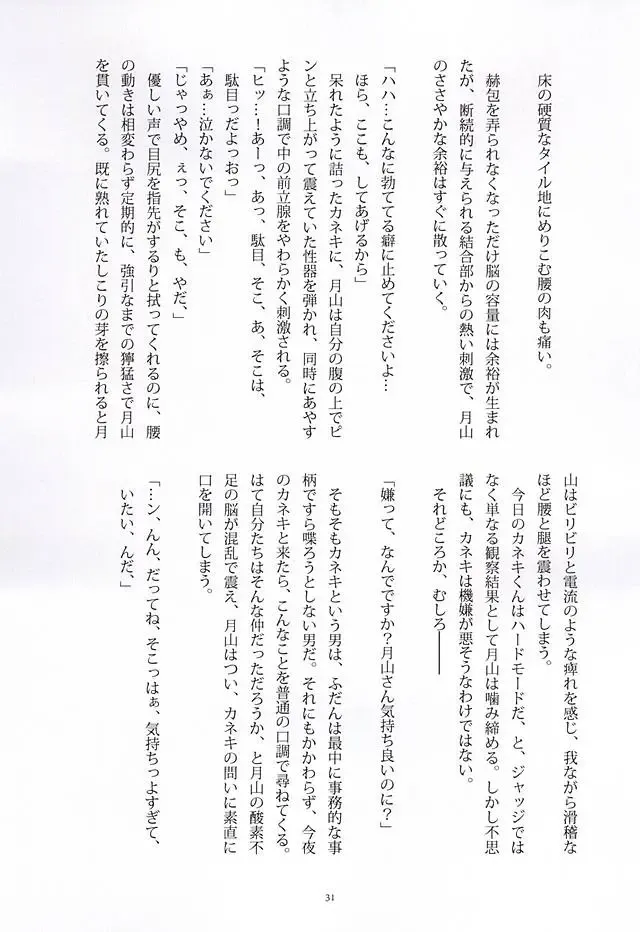 床の硬質なタイル地にめりこむ腰の肉も痛い。
赫包を弄られなくなっただけ脳の容量には余裕が生まれ
たが、断続的に与えられる結合部からの熱い刺激で、月山
のささやかな余裕はすぐに散っていく。
「ハハ…こんなに勃ててる癖に止めてくださいよ…
ほら、ここも、してあげるから」
呆れたように詰ったカネキに、月山は自分の腹の上でピ
ンと立ち上がって震えていた性器を弾かれ、同時にあやす
ような口調で中の前立腺をやわらかく刺激される。
「ヒッ…！あーっ、あっ、駄目、そこ、あ、そこは、
駄目っだよっおっ」
「あぁ…泣かないでください」
「じゃっやめ、ぇっ、そこ、も、やだ、」
優しい声で目尻を指先がするりと拭ってくれるのに、腰
の動きは相変わらず定期的に、強引なまでの獰猛さで月山
を貫いてくる。既に熟れていたしこりの芽を擦られると月
山はビリビリと電流のような痺れを感じ、我ながら滑稽な
ほど腰と腿を震わせてしまう。
今日のカネキくんはハードモードだ、と、ジャッジでは
なく単なる観察結果として月山は噛み締める。しかし不思
議にも、カネキは機嫌が悪そうなわけではない。
それどころか、むしろ――
「嫌って、なんでですか？月山さん気持ち良いのに？」
そもそもカネキという男は、ふだんは最中に事務的な事
柄ですら喋ろうとしない男だ。それにもかかわらず、今夜
のカネキと来たら、こんなことを普通の口調で尋ねてくる。
はて自分たちはそんな仲だっただろうか、と月山の酸素不
足の脳が混乱で震え、月山はつい、カネキの問いに素直に
口を開いてしまう。
「…ン、んん、だってね、そこっはぁ、気持ちっよすぎて、
いたい、んだ、」
31